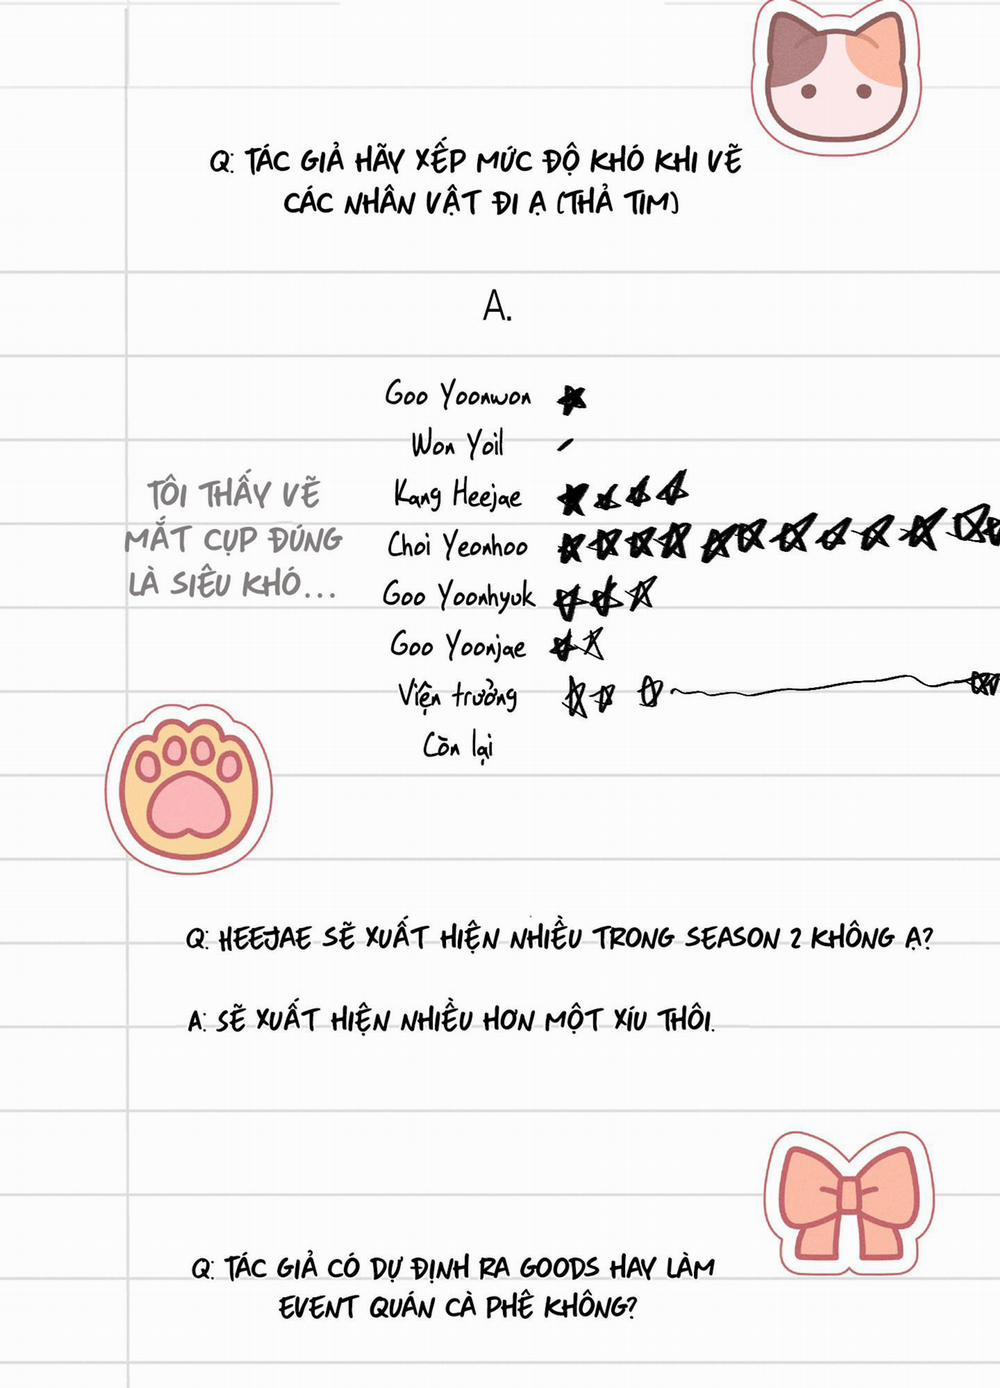 Q: TÁC GIẢ HÃY XẾP MỨC ĐỘ KHÓ KHI VẼ
CÁC NHÂN VẬT ĐI Ạ (THẢ TIM)
A.
Goo Yoonwon
Won Yoil
TÔI THẤY VẼ
MẮT CỤP ĐÚNG
LÀ SIÊU KHÓ...
Kang Heejae
Choi Yeonhoo
Goo Yoonhyuk
Goo Yoonjae
Viện trưởng
Còn lại
Q: HEEJAE SẼ XUẤT HIỆN NHIỀU TRONG SEASON 2 KHÔNG Ạ?
A: SẼ XUẤT HIỆN NHIỀU HƠN MỘT XÍU THÔI.
Q: TÁC GIẢ CÓ DỰ ĐỊNH RA GOODS HAY LÀM
EVENT QUÁN CÀ PHÊ KHÔNG?